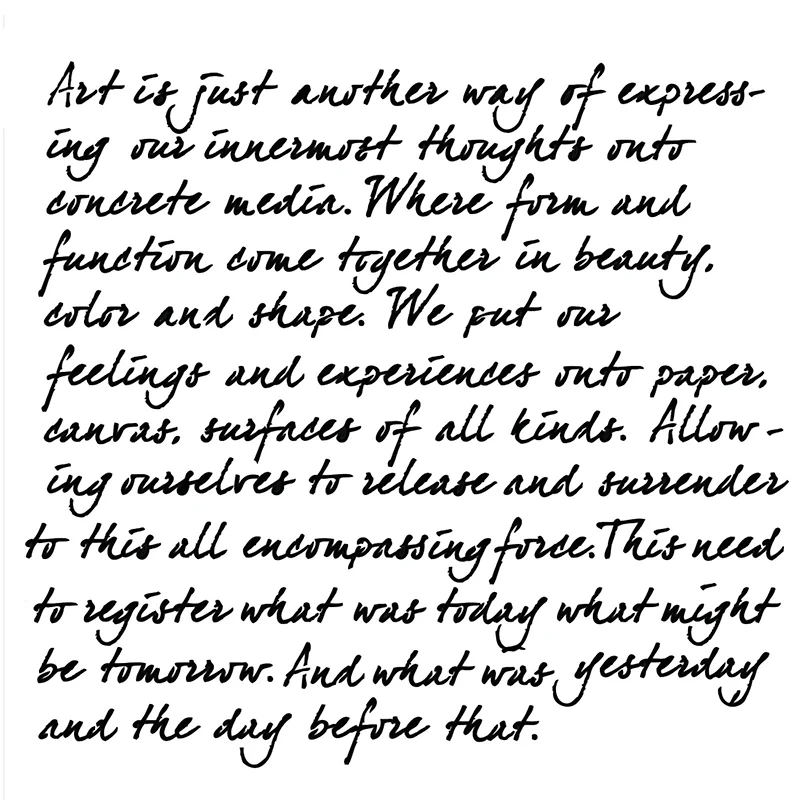 Art is just another way of express-
ing our innermost thoughts onto
concrete media. Where form and
function come together in beauty,
color and shape. We put our
feelings and experiences onto paper,
canvas, surfaces of all kinds. Allow-
ing ourselves to release and surrender
to this all encompassing force. This need
to register what was today what might
be tomorrow. And what was yesterday
and the day before that.